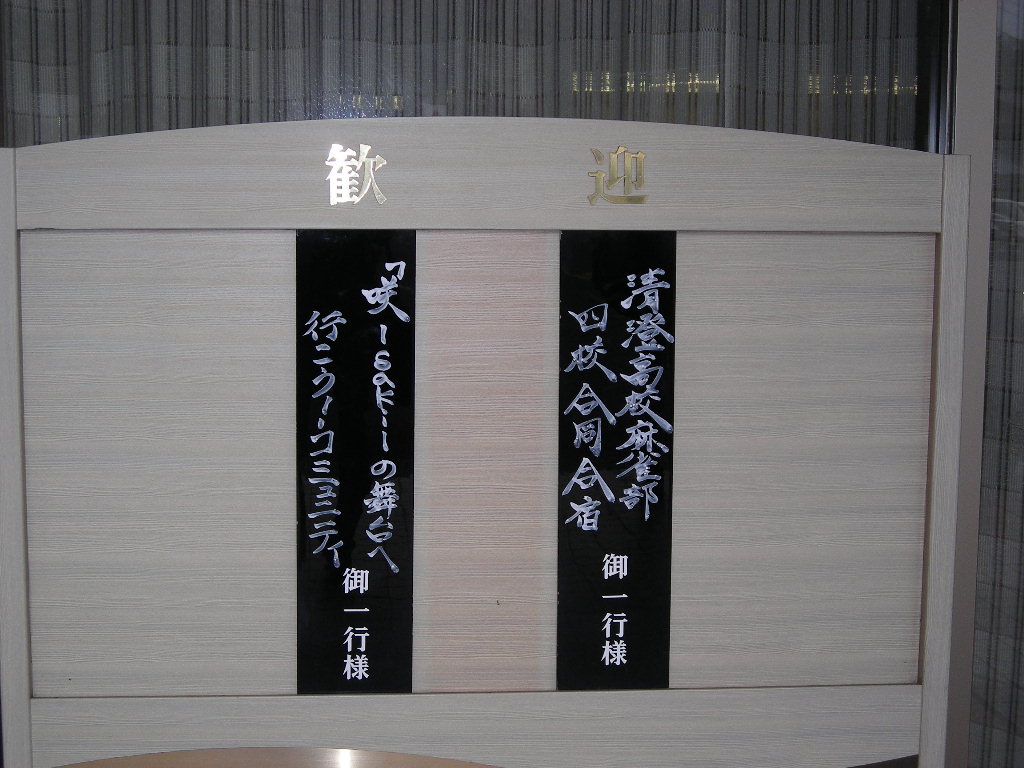 歓迎
清澄高校麻雀部
四校合同合宿
御一行様
「咲－Saki－」の舞台へ
行こう！－コミュニティ
御一行様